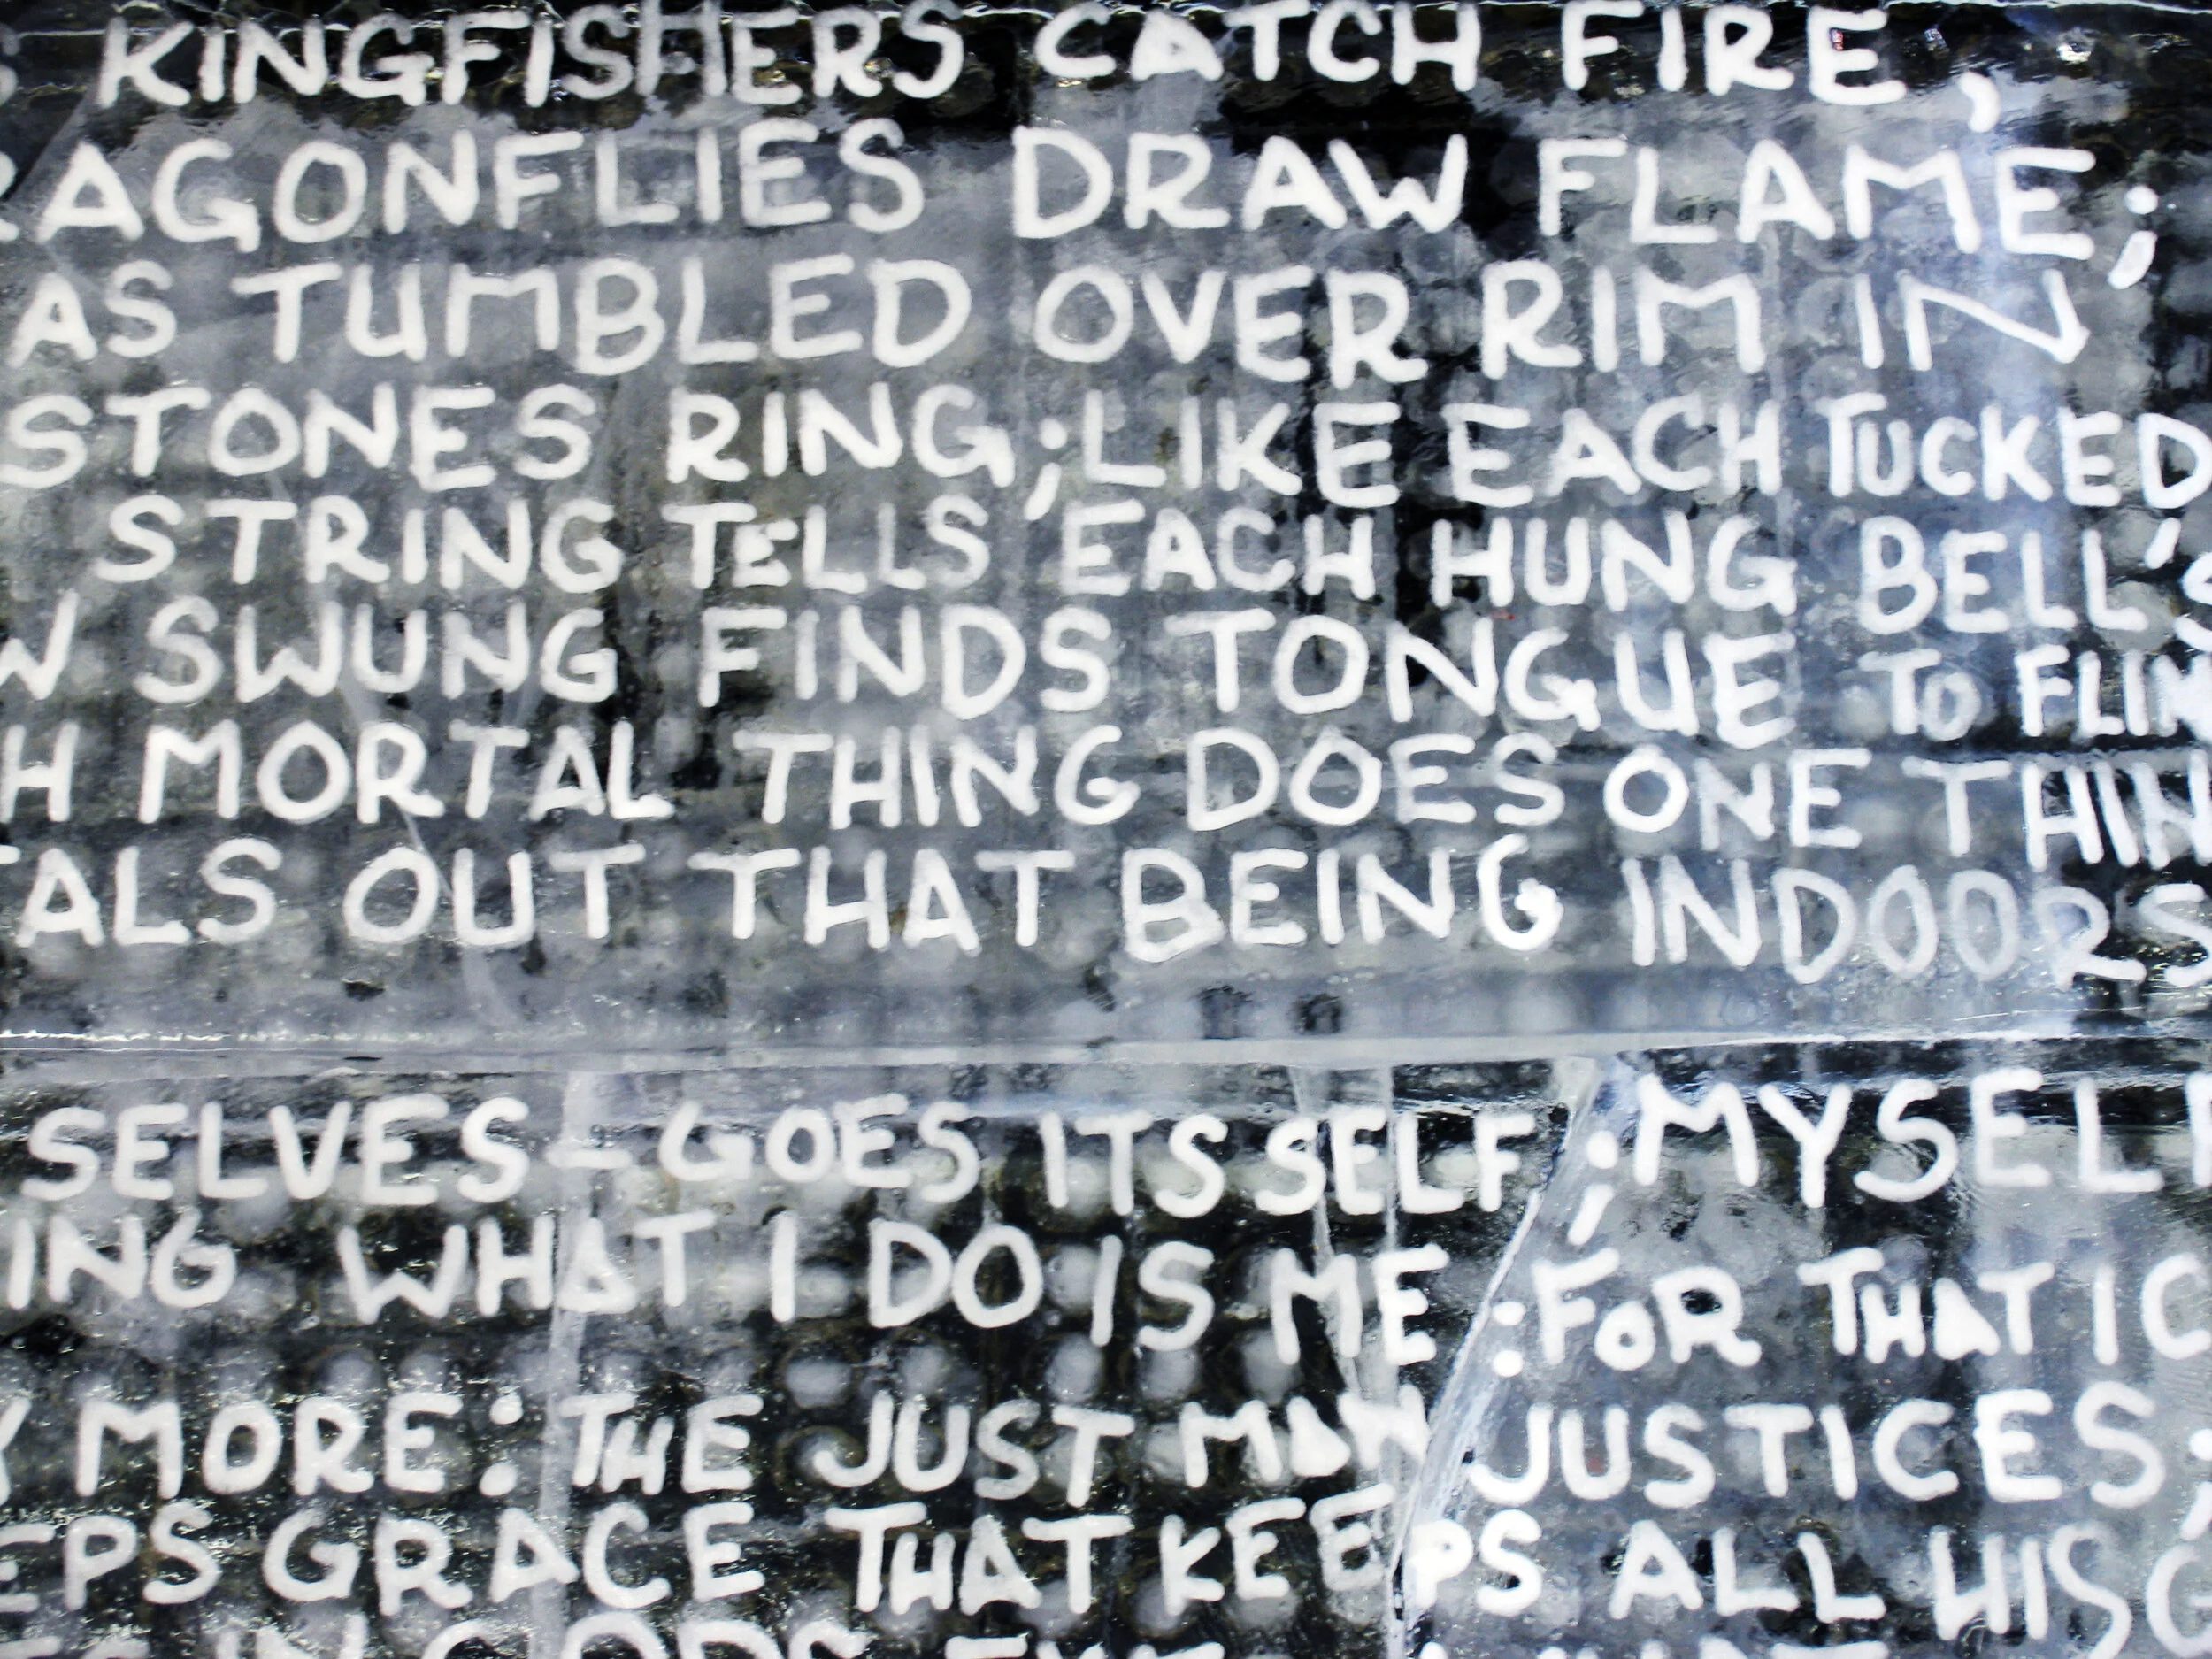 S KINGFISHERS CATCH FIRE,
RAGONFLIES DRAW FLAME;
AS TUMBLED OVER RIM IN
STONES RING; LIKE EACH TUCKED
STRING TELLS, EACH HUNG BELL'S
W SWUNG FINDS TONGUE TO FLIN
H MORTAL THING DOES ONE THIN
ALS OUT THAT BEING INDOORS
SELVES - GOES ITSSELF; MYSELF
ING WHAT I DO IS ME: FOR THAT I C
Y MORE: THE JUST MAN JUSTICES;
EPS GRACE THAT KEEPS ALL HIS G